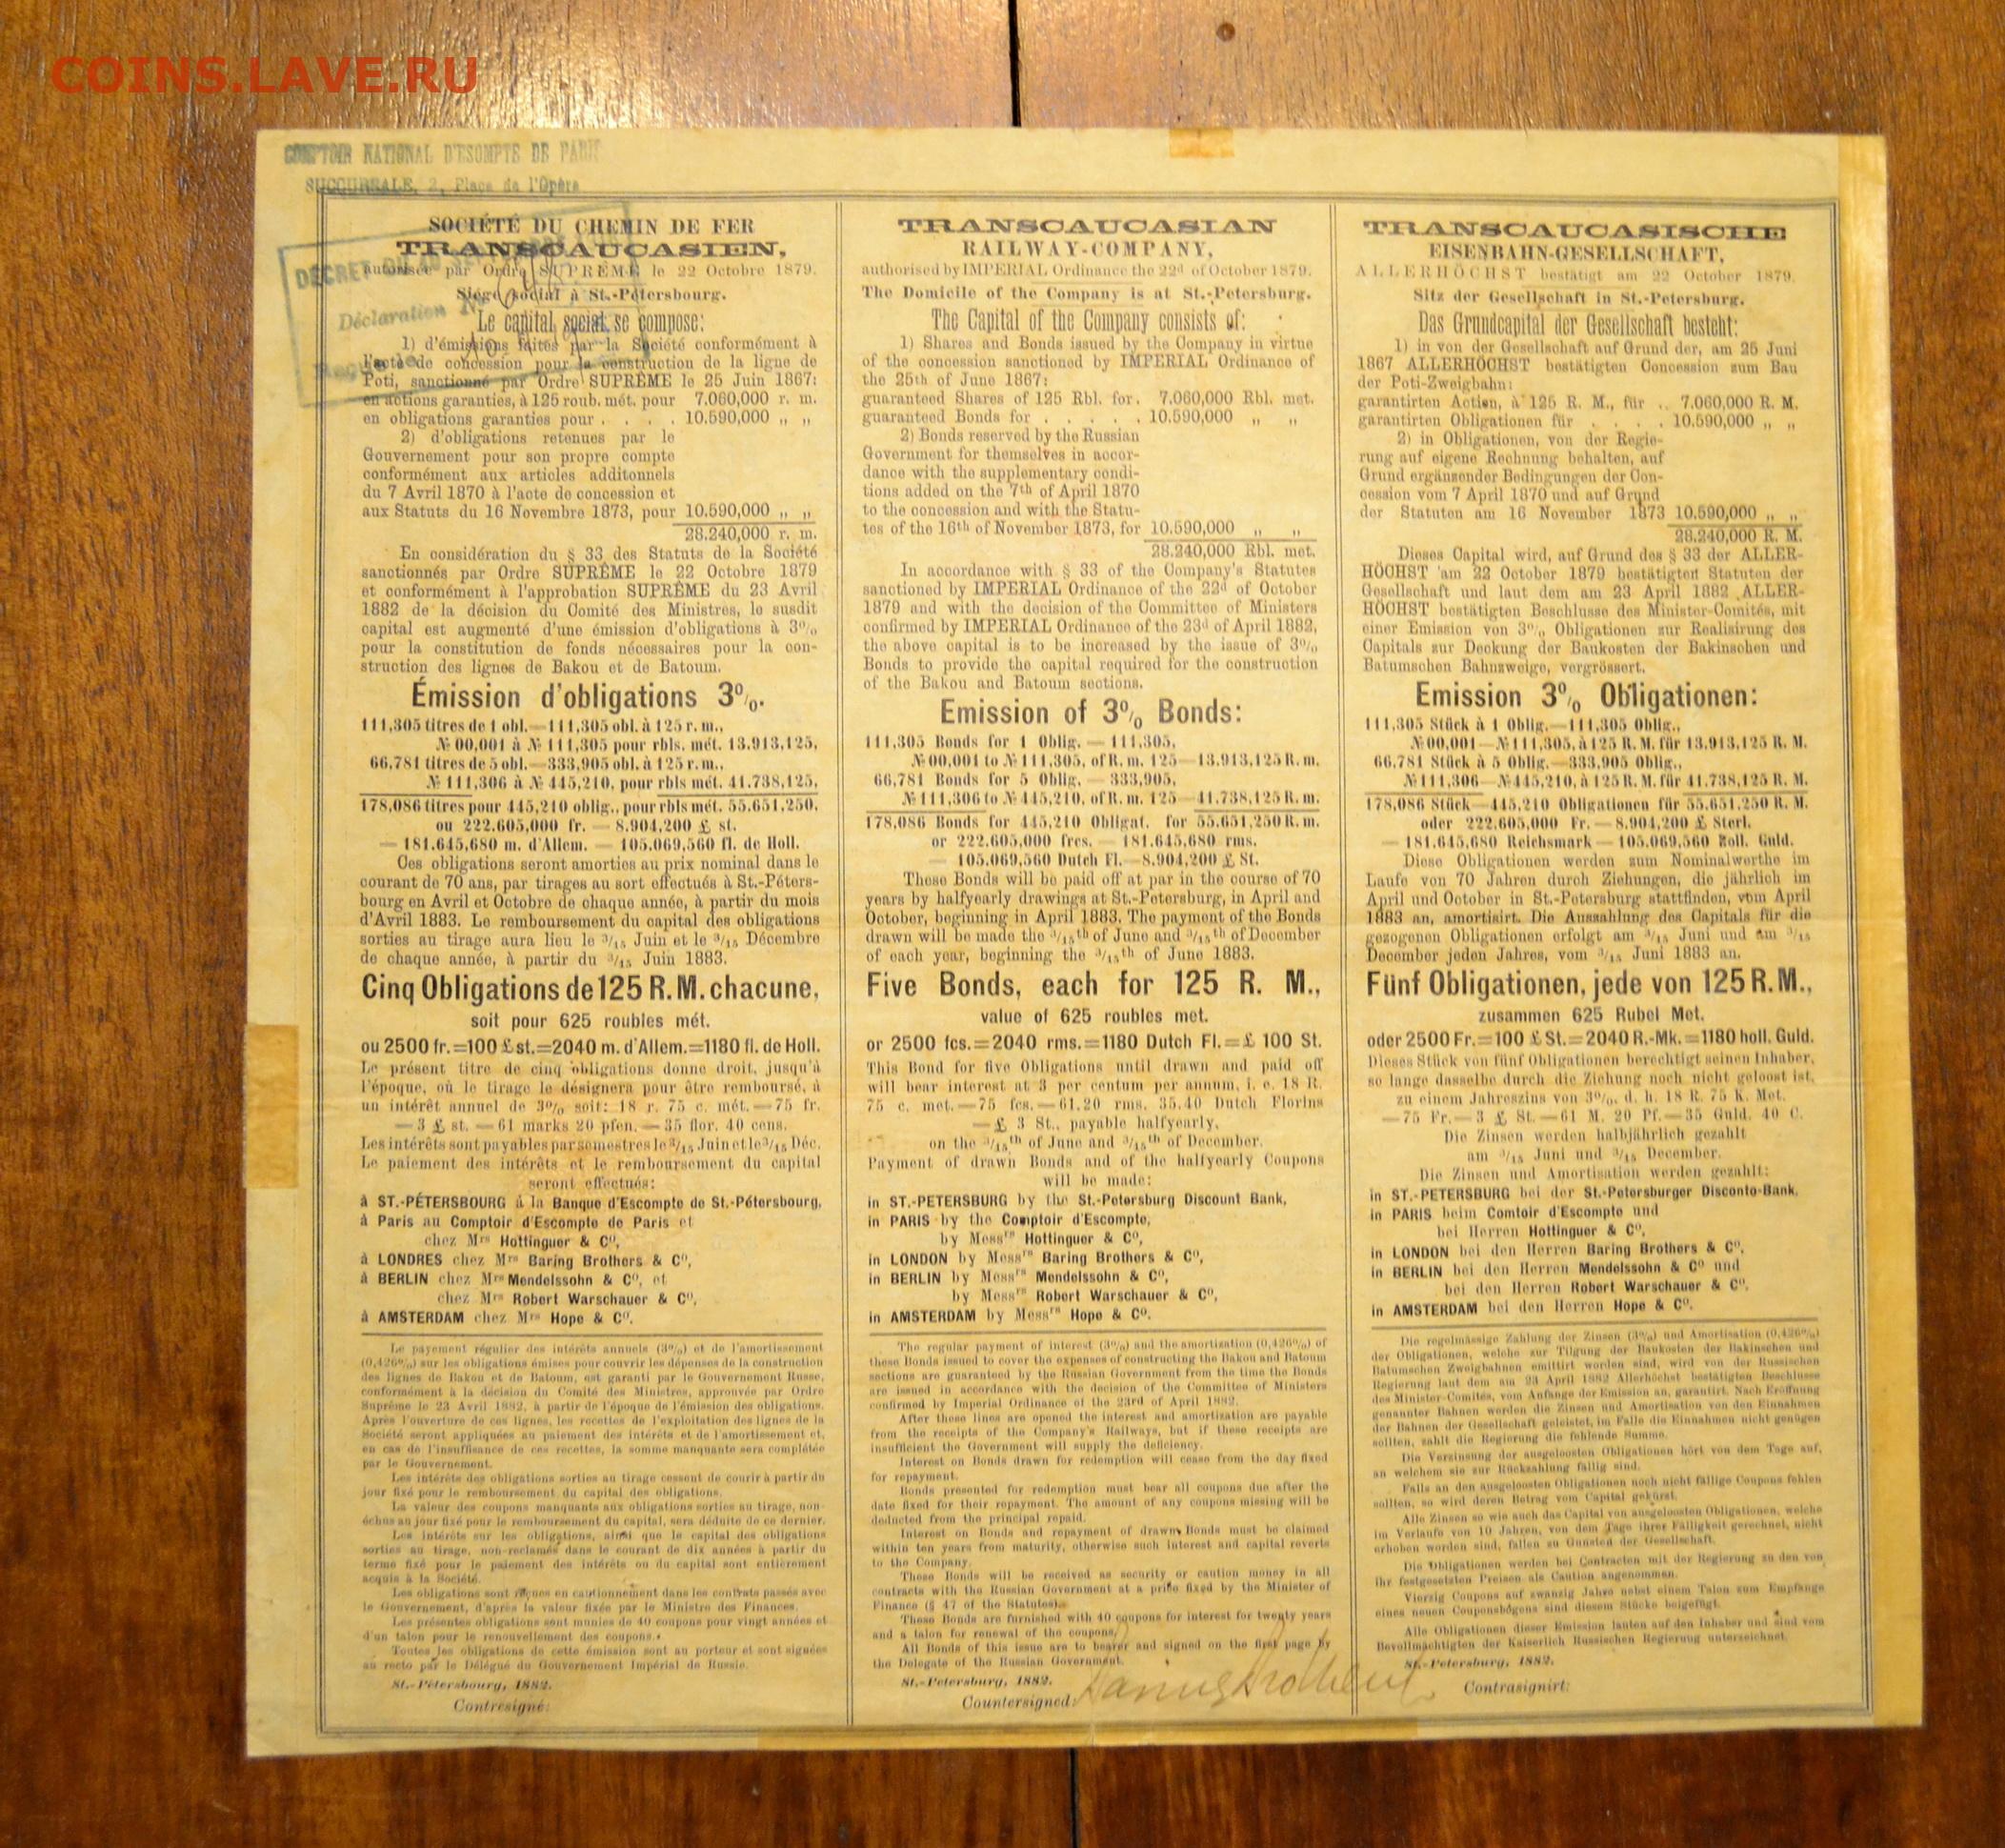 COINS.LAVE.RU
COMPTOIR NATIONAL D'ESOMPTE DE PARIS
SUCCURSALE, 2, Place de l'Opéra
DECRET DU
Déclaration N
SOCIÉTÉ DU CHEMIN DE FER
TRANSCAUCASIEN,
autorisée par Ordre SUPRÊME le 22 Octobre 1879.
Siége social à St.-Pétersbourg.
Le capital social se compose:
1) d'émissions faites par la Société conformément à
l'acte de concession pour la construction de la ligne de
Poti, sanctionné par Ordre SUPRÊME le 25 Juin 1867:
en actions garanties, à 125 roub. mét. pour 7.060,000 r. m.
en obligations garanties pour . . . . 10.590,000 „ „
2) d'obligations retenues par le
Gouvernement pour son propre compte
conformément aux articles additonnels
du 7 Avril 1870 à l'acte de concession et
aux Statuts du 16 Novembre 1873, pour 10.590,000 „ „
28.240,000 r. m.
En considération du § 33 des Statuts de la Société
sanctionnés par Ordre SUPRÊME le 22 Octobre 1879
et conformément à l'approbation SUPRÊME du 23 Avril
1882 de la décision du Comité des Ministres, le susdit
capital est augmenté d'une émission d'obligations à 3%
pour la constitution de fonds nécessaires pour la con-
struction des lignes de Bakou et de Batoum.
Émission d'obligations 3%.
111,305 titres de 1 obl.—111,305 obl. à 125 r. m.,
№ 00,001 à № 111,305 pour rbls. mét. 13.913,125,
66,781 titres de 5 obl.—333,905 obl. à 125 r. m.,
№ 111,306 à № 445,210, pour rbls mét. 41.738,125,
178,086 titres pour 445,210 oblig., pour rbls mét. 55.651,250,
ou 222.605,000 fr. — 8.904,200 £ st.
— 181.645,680 m. d'Allem. — 105.069,560 fl. de Holl.
Ces obligations seront amorties au prix nominal dans le
courant de 70 ans, par tirages au sort effectués à St.-Péters-
bourg en Avril et Octobre de chaque année, à partir du mois
d'Avril 1883. Le remboursement du capital des obligations
sorties au tirage aura lieu le 3/15 Juin et le 3/15 Décembre
de chaque année, à partir du 3/15 Juin 1883.
Cinq Obligations de 125 R. M. chacune,
soit pour 625 roubles mét.
ou 2500 fr.=100 £ st.=2040 m. d'Allem.=1180 fl. de Holl.
Le présent titre de cinq obligations donne droit, jusqu'à
l'époque, où le tirage le désignera pour être remboursé, à
un intérêt annuel de 3% soit: 18 r. 75 c. mét.—75 fr.
—3 £ st. — 61 marks 20 pfen. — 35 flor. 40 cens.
Les intérêts sont payables par semestres le 3/15 Juin et le 3/15 Déc.
Le paiement des intérêts et le remboursement du capital
seront effectués:
à ST.-PÉTERSBOURG à la Banque d'Escompte de St.-Pétersbourg,
à Paris au Comptoir d'Escompte de Paris et
chez Mrs Hottinguer & Cº,
à LONDRES chez Mrs Baring Brothers & Cº,
à BERLIN chez Mrs Mendelssohn & Cº, et
chez Mrs Robert Warschauer & Cº,
à AMSTERDAM chez Mrs Hope & Cº.
Le payement régulier des intérêts annuels (3%) et de l'amortissement
(0,426%) sur les obligations émises pour couvrir les dépenses de la construction
des lignes de Bakou et de Batoum, est garanti par le Gouvernement Russe,
conformément à la décision du Comité des Ministres, approuvée par Ordre
Suprême le 23 Avril 1882, à partir de l'époque de l'émission des obligations.
Après l'ouverture de ces lignes, les recettes de l'exploitation des lignes de la
Société seront appliquées au paiement des intérêts et de l'amortissement et,
en cas de l'insuffisance de ces recettes, la somme manquante sera complétée
par le Gouvernement.
Les intérêts des obligations sorties au tirage cessent de courir à partir du
jour fixé pour le remboursement du capital des obligations.
La valeur des coupons manquants aux obligations sorties au tirage, non-
échus au jour fixé pour le remboursement du capital, sera déduite de ce dernier.
Les intérêts sur les obligations, ainsi que le capital des obligations
sorties au tirage, non-reclamés dans le courant de dix années à partir du
terme fixé pour le paiement des intérêts ou du capital sont entièrement
acquis à la Société.
Les obligations sont reçues en cautionnement dans les contrats passés avec
le Gouvernement, d'après la valeur fixée par le Ministre des Finances.
Les présentes obligations sont munies de 40 coupons pour vingt années et
d'un talon pour le renouvellement des coupons.
Toutes les obligations de cette émission sont au porteur et sont signées
au recto par le Délégué du Gouvernement Impérial de Russie.
St.-Pétersbourg, 1882.
Contresigné:
TRANSCAUCASIAN
RAILWAY-COMPANY,
authorised by IMPERIAL Ordinance the 22d of October 1879.
The Domicile of the Company is at St.-Petersburg.
The Capital of the Company consists of:
1) Shares and Bonds issued by the Company in virtue
of the concession sanctioned by IMPERIAL Ordinance of
the 25th of June 1867:
guaranteed Shares of 125 Rbl. for. 7.060,000 Rbl. met.
guaranteed Bonds for . . . . . 10.590,000 „ „
2) Bonds reserved by the Russian
Government for themselves in accor-
dance with the supplementary condi-
tions added on the 7th of April 1870
to the concession and with the Statu-
tes of the 16th of November 1873, for 10.590,000 „ „
28.240,000 Rbl. met.
In accordance with § 33 of the Company's Statutes
sanctioned by IMPERIAL Ordinance of the 22d of October
1879 and with the decision of the Committee of Ministers
confirmed by IMPERIAL Ordinance of the 23d of April 1882,
the above capital is to be increased by the issue of 3%
Bonds to provide the capital required for the construction
of the Bakou and Batoum sections.
Emission of 3% Bonds:
111,305 Bonds for 1 Oblig. — 111,305,
№ 00,001 to № 111,305, of R. m. 125—13.913,125 R. m.
66,781 Bonds for 5 Oblig. — 333,905,
№ 111,306 to № 445,210, of R. m. 125—41.738,125 R. m.
178,086 Bonds for 445,210 Obligat. for 55.651,250 R. m.
or 222.605,000 frcs. — 181.645,680 rms.
— 105.069,560 Dutch Fl.—8.904,200 £ St.
These Bonds will be paid off at par in the course of 70
years by halfyearly drawings at St.-Petersburg, in April and
October, beginning in April 1883. The payment of the Bonds
drawn will be made the 3/15th of June and 3/15th of December
of each year, beginning the 3/15th of June 1883.
Five Bonds, each for 125 R. M.,
value of 625 roubles met.
or 2500 fcs.=2040 rms.=1180 Dutch Fl.=£ 100 St.
This Bond for five Obligations until drawn and paid off
will bear interest at 3 per centum per annum, i. e. 18 R.
75 c. met.—75 fcs.—61.20 rms. 35.40 Dutch Florins
—£ 3 St., payable halfyearly,
on the 3/15th of June and 3/15th of December.
Payment of drawn Bonds and of the halfyearly Coupons
will be made:
in ST.-PETERSBURG by the St.-Petersburg Discount Bank,
in PARIS by the Comptoir d'Escompte,
by Messrs Hottinguer & Cº,
in LONDON by Messrs Baring Brothers & Cº,
in BERLIN by Messrs Mendelssohn & Cº,
by Messrs Robert Warschauer & Cº,
in AMSTERDAM by Messrs Hope & Cº.
The regular payment of interest (3%) and the amortization (0,426%) of
these Bonds issued to cover the expenses of constructing the Bakou and Batoum
sections are guaranteed by the Russian Government from the time the Bonds
are issued in accordance with the decision of the Committee of Ministers
confirmed by Imperial Ordinance of the 23rd of April 1882.
After these lines are opened the interest and amortization are payable
from the receipts of the Company's Railways, but if these receipts are
insufficient the Government will supply the deficiency.
Interest on Bonds drawn for redemption will cease from the day fixed
for repayment.
Bonds presented for redemption must bear all coupons due after the
date fixed for their repayment. The amount of any coupons missing will be
deducted from the principal repaid.
Interest on Bonds and repayment of drawn Bonds must be claimed
within ten years from maturity, otherwise such interest and capital reverts
to the Company.
These Bonds will be received as security or caution money in all
contracts with the Russian Government at a price fixed by the Minister of
Finance (§ 47 of the Statutes).
These Bonds are furnished with 40 coupons for interest for twenty years
and a talon for renewal of the coupons.
All Bonds of this issue are to bearer and signed on the first page by
the Delegate of the Russian Government.
St.-Petersburg, 1882.
Countersigned:
TRANSCAUCASISCHE
EISENBAHN-GESELLSCHAFT,
ALLERHÖCHST bestätigt am 22 October 1879.
Sitz der Gesellschaft in St.-Petersburg.
Das Grundcapital der Gesellschaft besteht:
1) in von der Gesellschaft auf Grund der, am 25 Juni
1867 ALLERHÖCHST bestätigten Concession zum Bau
der Poti-Zweigbahn:
garantirten Actien, à 125 R. M., für .. 7.060,000 R. M.
garantirten Obligationen für . . . . 10.590,000 „ „
2) in Obligationen, von der Regie-
rung auf eigene Rechnung behalten, auf
Grund ergänzender Bedingungen der Con-
cession vom 7 April 1870 und auf Grund
der Statuten am 16 November 1873 10.590,000 „ „
28.240,000 R. M.
Dieses Capital wird, auf Grund des § 33 der ALLER-
HÖCHST am 22 October 1879 bestätigten Statuten der
Gesellschaft und laut dem am 23 April 1882 ALLER-
HÖCHST bestätigten Beschlusse des Minister-Comités, mit
einer Emission von 3% Obligationen zur Realisirung des
Capitals zur Deckung der Baukosten der Bakinschen und
Batumschen Bahnzweige, vergrössert.
Emission 3% Obligationen:
111,305 Stück à 1 Oblig.—111,305 Oblig.,
№ 00,001—№ 111,305, à 125 R. M. für 13,913,125 R. M.
66,781 Stück à 5 Oblig.—333,905 Oblig.,
№ 111,306—№ 445,210, à 125 R. M. für 41.738,125 R. M.
178,086 Stück—445,210 Obligationen für 55.651,250 R. M.
oder 222.605,000 Fr. — 8.904,200 £ Sterl.
— 181.645,680 Reichsmark — 105.069,560 Holl. Guld.
Diese Obligationen werden zum Nominalwerthe im
Laufe von 70 Jahren durch Ziehungen, die jährlich im
April und October in St.-Petersburg stattfinden, vom April
1883 an, amortisirt. Die Auszahlung des Capitals für die
gezogenen Obligationen erfolgt am 3/15 Juni und am 3/15
December jeden Jahres, vom 3/15 Juni 1883 an.
Fünf Obligationen, jede von 125 R. M.,
zusammen 625 Rubel Met.
oder 2500 Fr.=100 £ St.=2040 R.-Mk.=1180 holl. Guld.
Dieses Stück von fünf Obligationen berechtigt seinen Inhaber,
so lange dasselbe durch die Ziehung noch nicht geloost ist,
zu einem Jahreszins von 3%, d. h. 18 R. 75 K. Met.
—75 Fr.—3 £ St.—61 M. 20 Pf.—35 Guld. 40 C.
Die Zinsen werden halbjährlich gezahlt
am 3/15 Juni und 3/15 December.
Die Zinsen und Amortisation werden gezahlt:
in ST.-PETERSBURG bei der St.-Petersburger Disconto-Bank,
in PARIS beim Comtoir d'Escompte und
bei Herren Hottinguer & Cº,
in LONDON bei den Herren Baring Brothers & Cº,
in BERLIN bei den Herren Mendelssohn & Cº und
bei den Herren Robert Warschauer & Cº,
in AMSTERDAM bei den Herren Hope & Cº.
Die regelmässige Zahlung der Zinsen (3%) und Amortisation (0,426%)
der Obligationen, welche zur Tilgung der Baukosten der Bakinschen und
Batumschen Zweigbahnen emittirt worden sind, wird von der Russischen
Regierung laut dem am 23 April 1882 Allerhöchst bestätigten Beschlusse
des Minister-Comités, vom Anfange der Emission an, garantirt. Nach Eröffnung
genannter Bahnen werden die Zinsen und Amortisation von den Einnahmen
der Bahnen der Gesellschaft geleistet, im Falle die Einnahmen nicht genügen
sollten, zahlt die Regierung die fehlende Summe.
Die Verzinsung der ausgeloosten Obligationen hört von dem Tage auf,
an welchem sie zur Rückzahlung fällig sind.
Falls an den ausgeloosten Obligationen noch nicht fällige Coupons fehlen
sollten, so wird deren Betrag vom Capital gekürzt.
Alle Zinsen so wie auch das Capital von ausgeloosten Obligationen, welche
im Verlaufe von 10 Jahren, von dem Tage ihrer Fälligkeit gerechnet, nicht
erhoben worden sind, fallen zu Gunsten der Gesellschaft.
Die Obligationen werden bei Contracten mit der Regierung zu den von
ihr festgesetzten Preisen als Caution angenommen.
Vierzig Coupons auf zwanzig Jahre nebst einem Talon zum Empfange
eines neuen Couponsbogens sind diesem Stücke beigefügt.
Alle Obligationen dieser Emission lauten auf den Inhaber und sind vom
Bevollmächtigten der Kaiserlich Russischen Regierung unterzeichnet.
St.-Petersburg, 1882.
Contrasignirt: